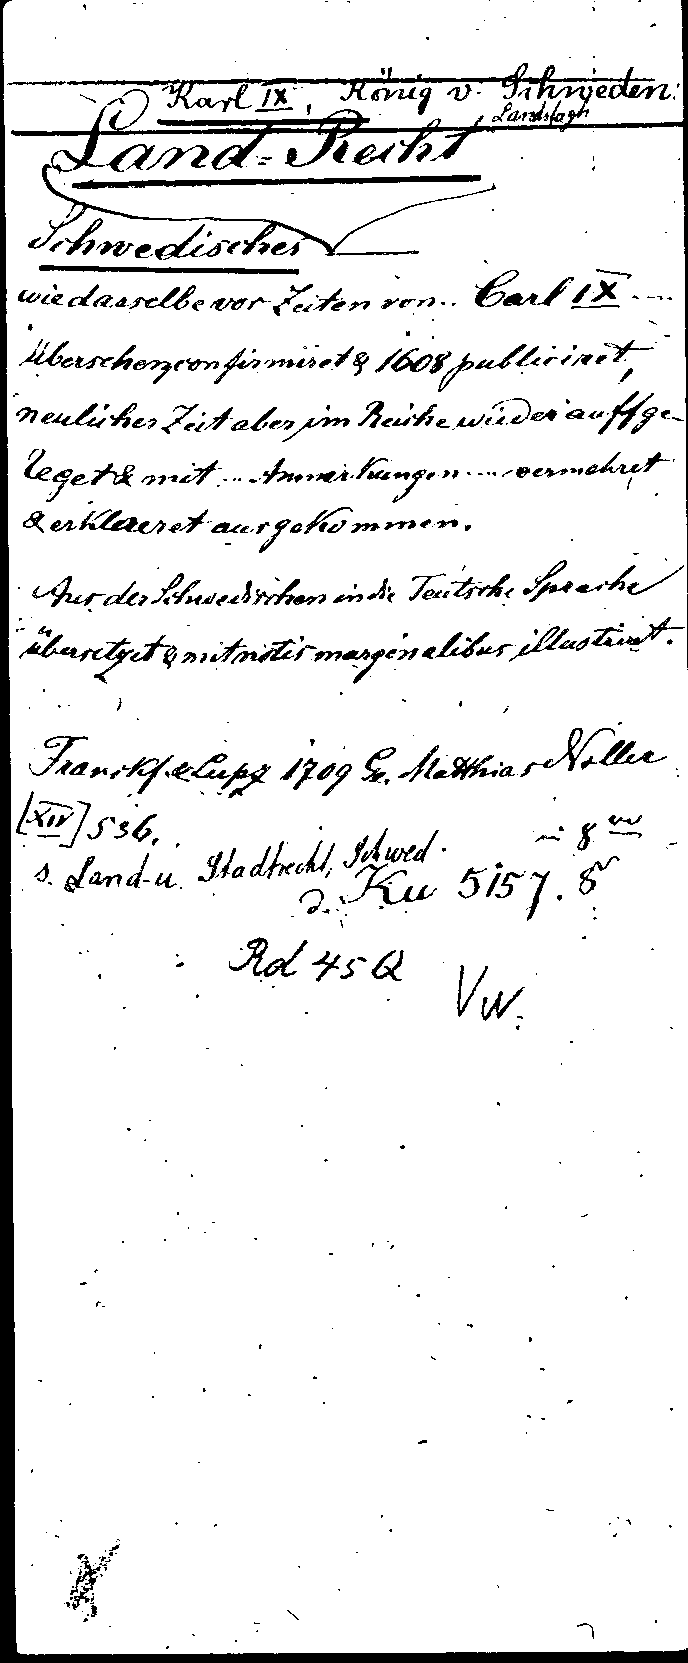 Karl IX, König v. Schweden:
Landslagh
Land-Recht
Schwedisches
wie dasselbe vor Zeiten von.. Carl IX ....
übersehen, confirmiret & 1608 publiciret,
neulicher Zeit aber im Reiche wieder auffge-
leget & mit ... Anmerkungen .... vermehret
& erklaeret ausgekommen.
Aus der Schwedischen in die Teutsche Sprache
übersetzet & mit notis marginalibus illustriret.
Franckf. & Leipz 1709 Gr. Matthias Nöller
[XIV] 536.
in 8vo
s. Land- u. Stadtrecht, Schwed.
Ku 5157. 8°
Rd 45 Q
VW.